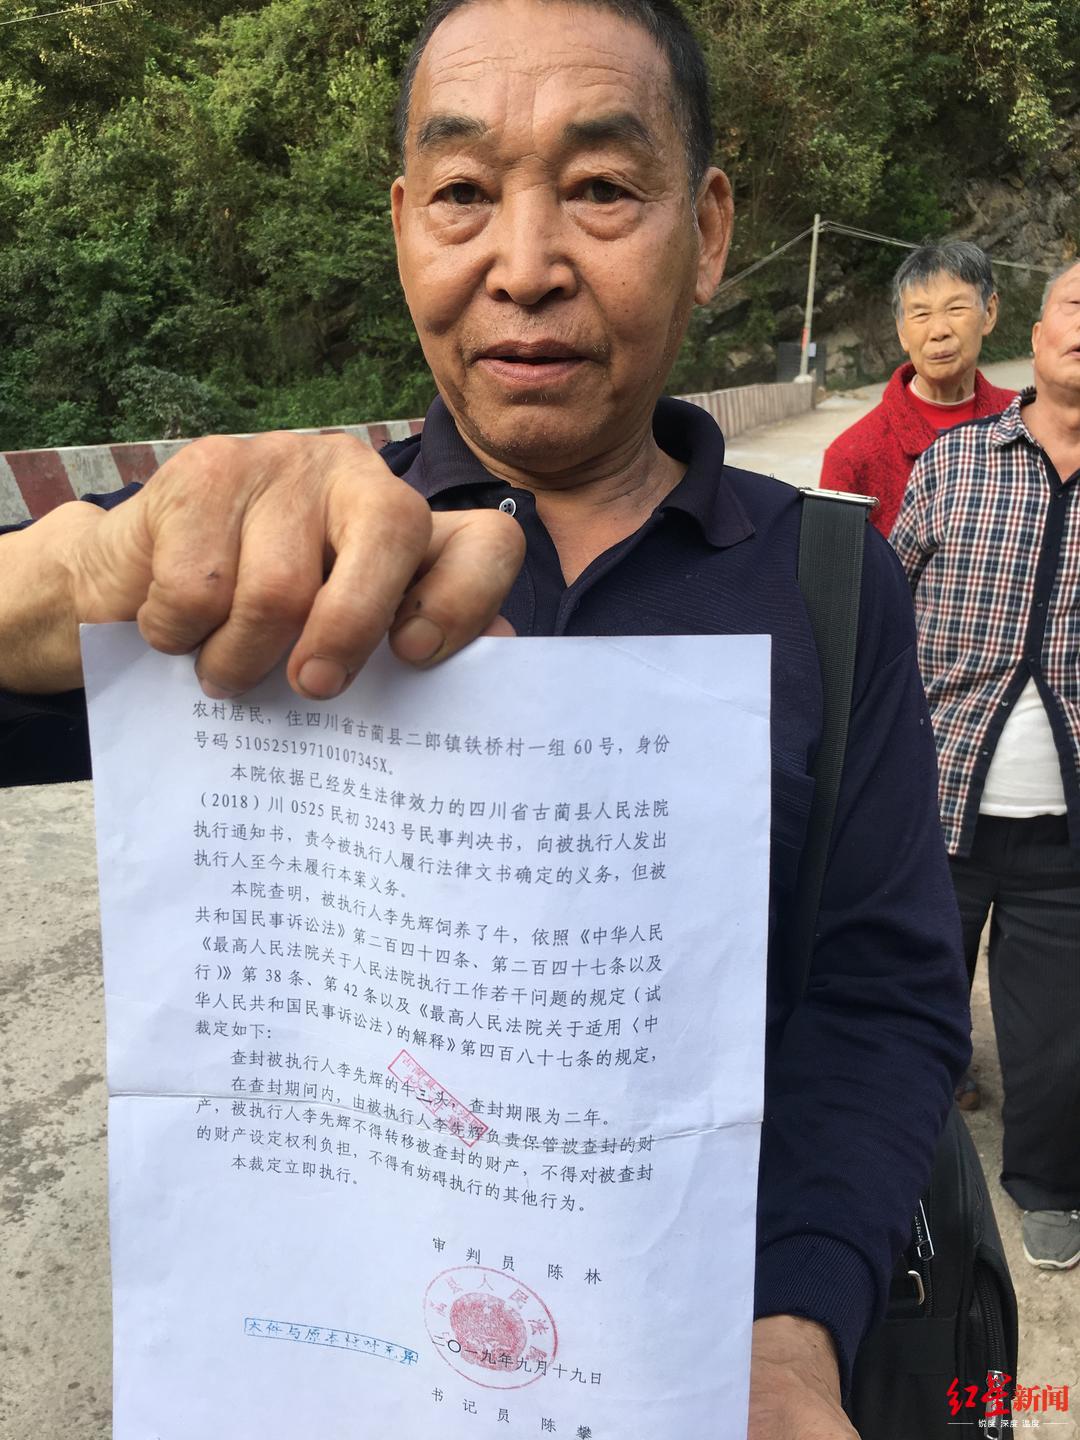 农村居民，住四川省古蔺县二郎镇铁桥村一组60号，身份
号码51052519710107345X。
本院依据已经发生法律效力的四川省古蔺县人民法院
（2018）川0525民初3243号民事判决书，向被执行人发出
执行通知书，责令被执行人履行法律文书确定的义务，但被
执行人至今未履行本案义务。
本院查明，被执行人李先辉饲养了牛，依照《中华人民
共和国民事诉讼法》第二百四十四条、第二百四十七条以及
《最高人民法院关于人民法院执行工作若干问题的规定（试
行）》第38条、第42条以及《最高人民法院关于适用〈中
华人民共和国民事诉讼法〉的解释》第四百八十七条的规定，
裁定如下：
查封被执行人李先辉的牛三头，查封期限为二年。
在查封期间内，由被执行人李先辉负责保管被查封的财
产，被执行人李先辉不得转移被查封的财产，不得对被查封
的财产设定权利负担，不得有妨碍执行的其他行为。
本裁定立即执行。
审判员 陈林
县人民法
二〇一九年九月十九日
本件与原本核对无异
书记员 陈攀
红星新闻
锐度 深度 温度